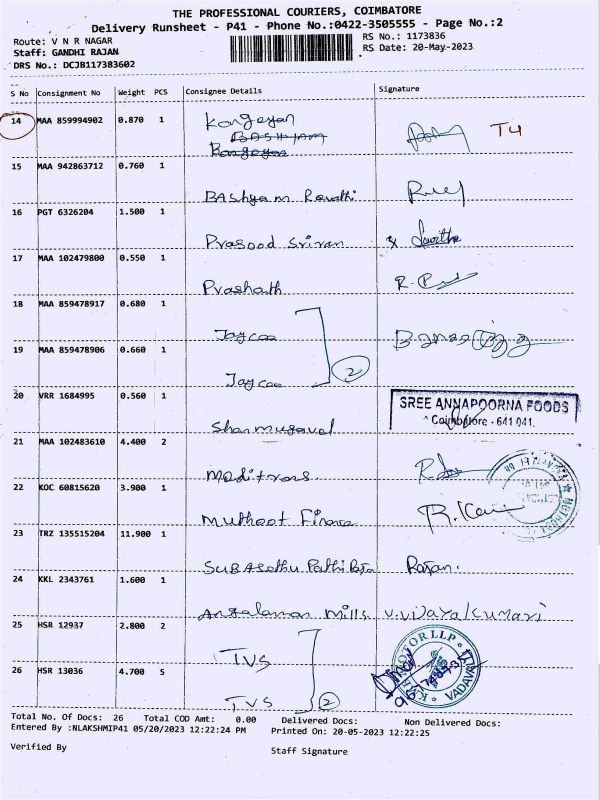 THE PROFESSIONAL COURIERS, COIMBATORE
Delivery Runsheet - P41 - Phone No.:0422-3505555 - Page No.:2
Route: V N R NAGAR
RS No.: 1173836
Staff: GANDHI RAJAN
RS Date: 20-May-2023
DRS No.: DCJB117383602
S No Consignment No Weight PCS Consignee Details Signature
14 MAA 859994902 0.870 1 Kangayan T4
15 MAA 942863712 0.760 1 BAshyam Revathi
16 PGT 6326204 1.500 1 Prasood Sriran
17 MAA 102479800 0.550 1 Prashath
18 MAA 859478917 0.680 1 Jaycee
19 MAA 859478906 0.660 1 Jaycee 2
20 VRR 1684995 0.560 1 Shanmugavel
SREE ANNAPOORNA FOODS
Coimbatore - 641 041.
21 MAA 102483610 4.400 2 Meditrons
22 KOC 60815620 3.900 1 Muthoot Finance
23 TRZ 135515204 11.900 1 SUBASethu Pathi Raja Rajan.
24 KKL 2343761 1.600 1 Angalaman Mills V.Vijayalkumari
25 HSR 12937 2.800 2 TVS
26 HSR 13036 4.700 5 TVS 2
MOTOR LLP
VADAVALLI
Total No. Of Docs: 26 Total COD Amt: 0.00 Delivered Docs: Non Delivered Docs:
Entered By :NLAKSHMIP41 05/20/2023 12:22:24 PM Printed On: 20-05-2023 12:22:25
Verified By
Staff Signature